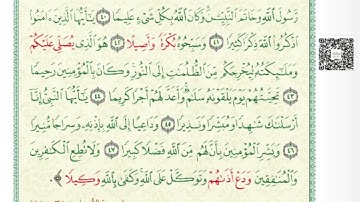 رَّسُولَ ٱللَّهِ وَخَاتَمَ ٱلنَّبِيِّـۧنَۗ وَكَانَ ٱللَّهُ بِكُلِّ شَىْءٍ عَلِيمًا ٤٠ يَـٰٓأَيُّهَا ٱلَّذِينَ ءَامَنُوا۟
ٱذْكُرُوا۟ ٱللَّهَ ذِكْرًا كَثِيرًا ٤١ وَسَبِّحُوهُ بُكْرَةً وَأَصِيلًا ٤٢ هُوَ ٱلَّذِى يُصَلِّى عَلَيْكُمْ
وَمَلَـٰٓئِكَتُهُۥ لِيُخْرِجَكُم مِّنَ ٱلظُّلُمَـٰتِ إِلَى ٱلنُّورِۚ وَكَانَ بِٱلْمُؤْمِنِينَ رَحِيمًا
٤٣ تَحِيَّتُهُمْ يَوْمَ يَلْقَوْنَهُۥ سَلَـٰمٌۚ وَأَعَدَّ لَهُمْ أَجْرًا كَرِيمًا ٤٤ يَـٰٓأَيُّهَا ٱلنَّبِىُّ إِنَّآ
أَرْسَلْنَـٰكَ شَـٰهِدًا وَمُبَشِّرًا وَنَذِيرًا ٤٥ وَدَاعِيًا إِلَى ٱللَّهِ بِإِذْنِهِۦ وَسِرَاجًا مُّنِيرًا
٤٦ وَبَشِّرِ ٱلْمُؤْمِنِينَ بِأَنَّ لَهُم مِّنَ ٱللَّهِ فَضْلًا كَبِيرًا ٤٧ وَلَا تُطِعِ ٱلْكَـٰفِرِينَ
وَٱلْمُنَـٰفِقِينَ وَدَعْ أَذَىٰهُمْ وَتَوَكَّلْ عَلَى ٱللَّهِۚ وَكَفَىٰ بِٱللَّهِ وَكِيلًا